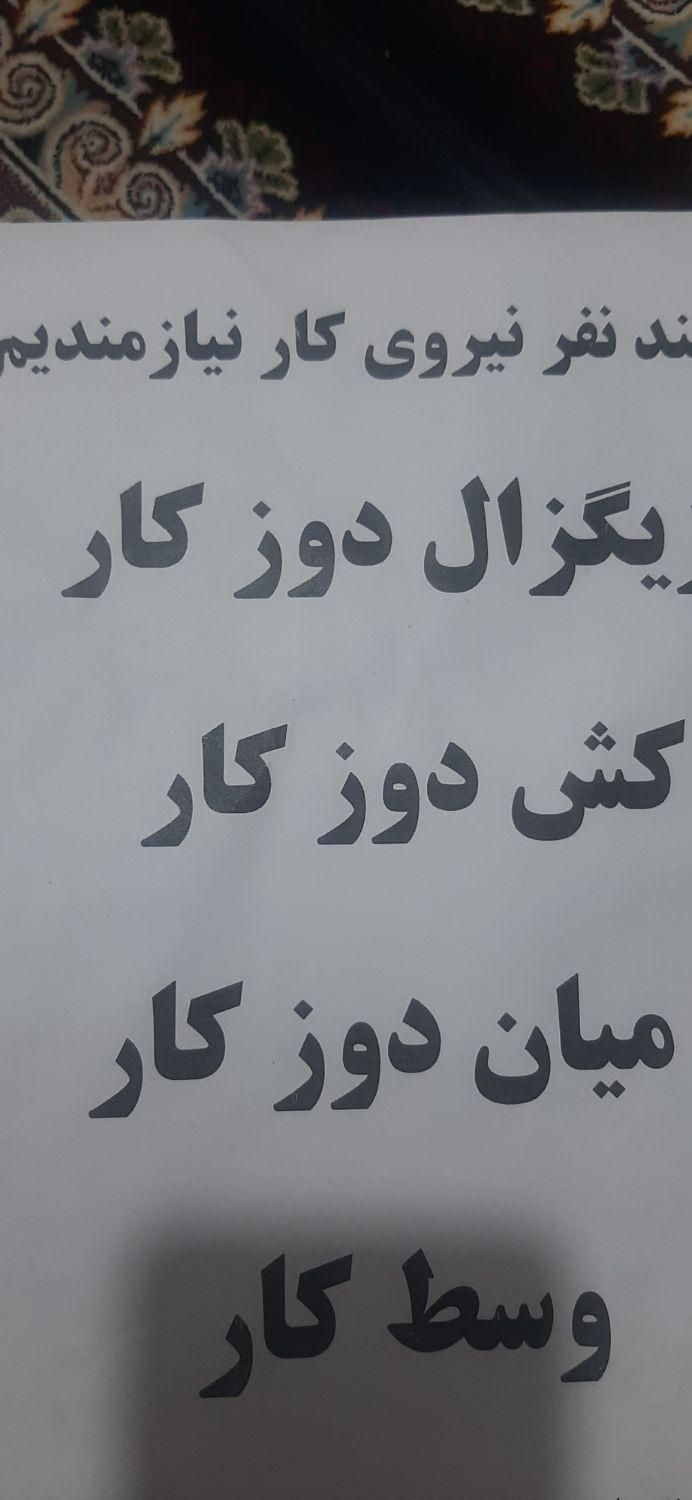 ند نفر نیروی کار نیازمندیم
زیگزال دوز کار
کش دوز کار
میان دوز کار
وسط کار